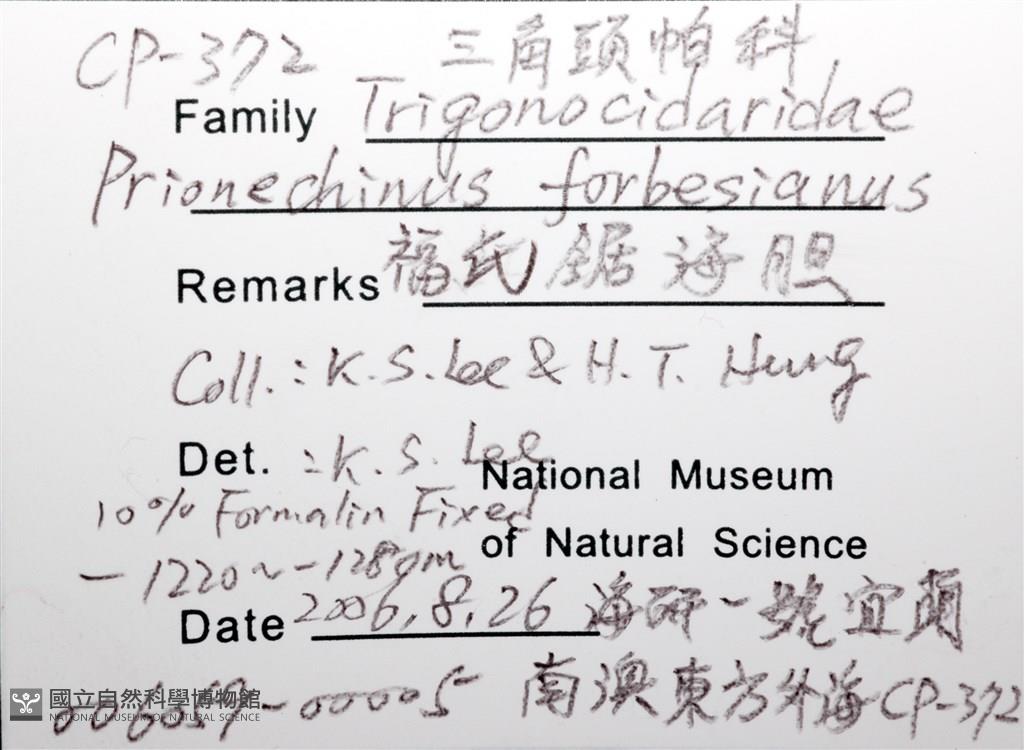 CP-372 三角頭帕科
Family Trigonocidaridae
Prionechinus forbesianus
Remarks 福氏鋸海胆
Coll.: K.S.Lee & H.T. Hung
Det. : K.S. Lee
National Museum
10% Formalin Fixed
of Natural Science
-1220~-1280m
Date 2006.8.26 海研一號宜蘭
南澳東方外海CP-372
-00005
國立自然科學博物館
NATIONAL MUSEUM OF NATURAL SCIENCE